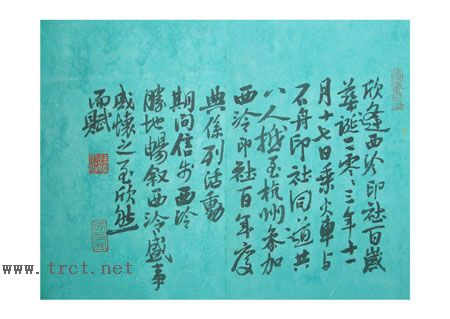 欣逢西泠印社百歲
華誕二零零三年十一
月十七日乘火車与
石舟印社同道共
八人越至杭州参加
西泠印社百年慶
典係列活動
期间信步西泠
勝地暢叙西泠盛事
感懷之至欣然
而赋
www.trct.net